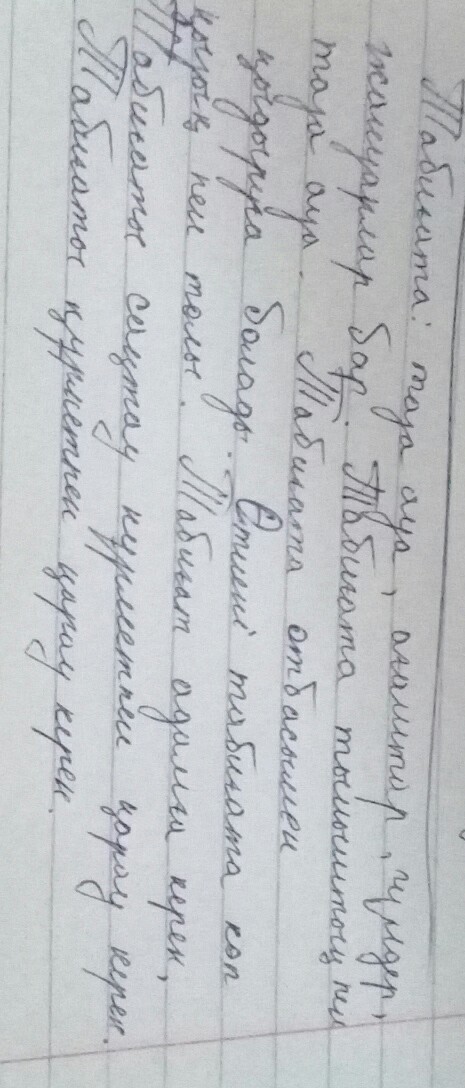 Табиғата: таза ауа, ағаштар, гүлдер,
жануарлар бар. Табиғата тыныштық пен
таза ауа. Табиғата отбасымен
қыдыруға болады. Өткені табиғата көп
қызық пен толы. Табиғат адамға керек,
Табиғаты сақтау құрметпен қарау керек.
Табиғаты құрметпен қарау керек.